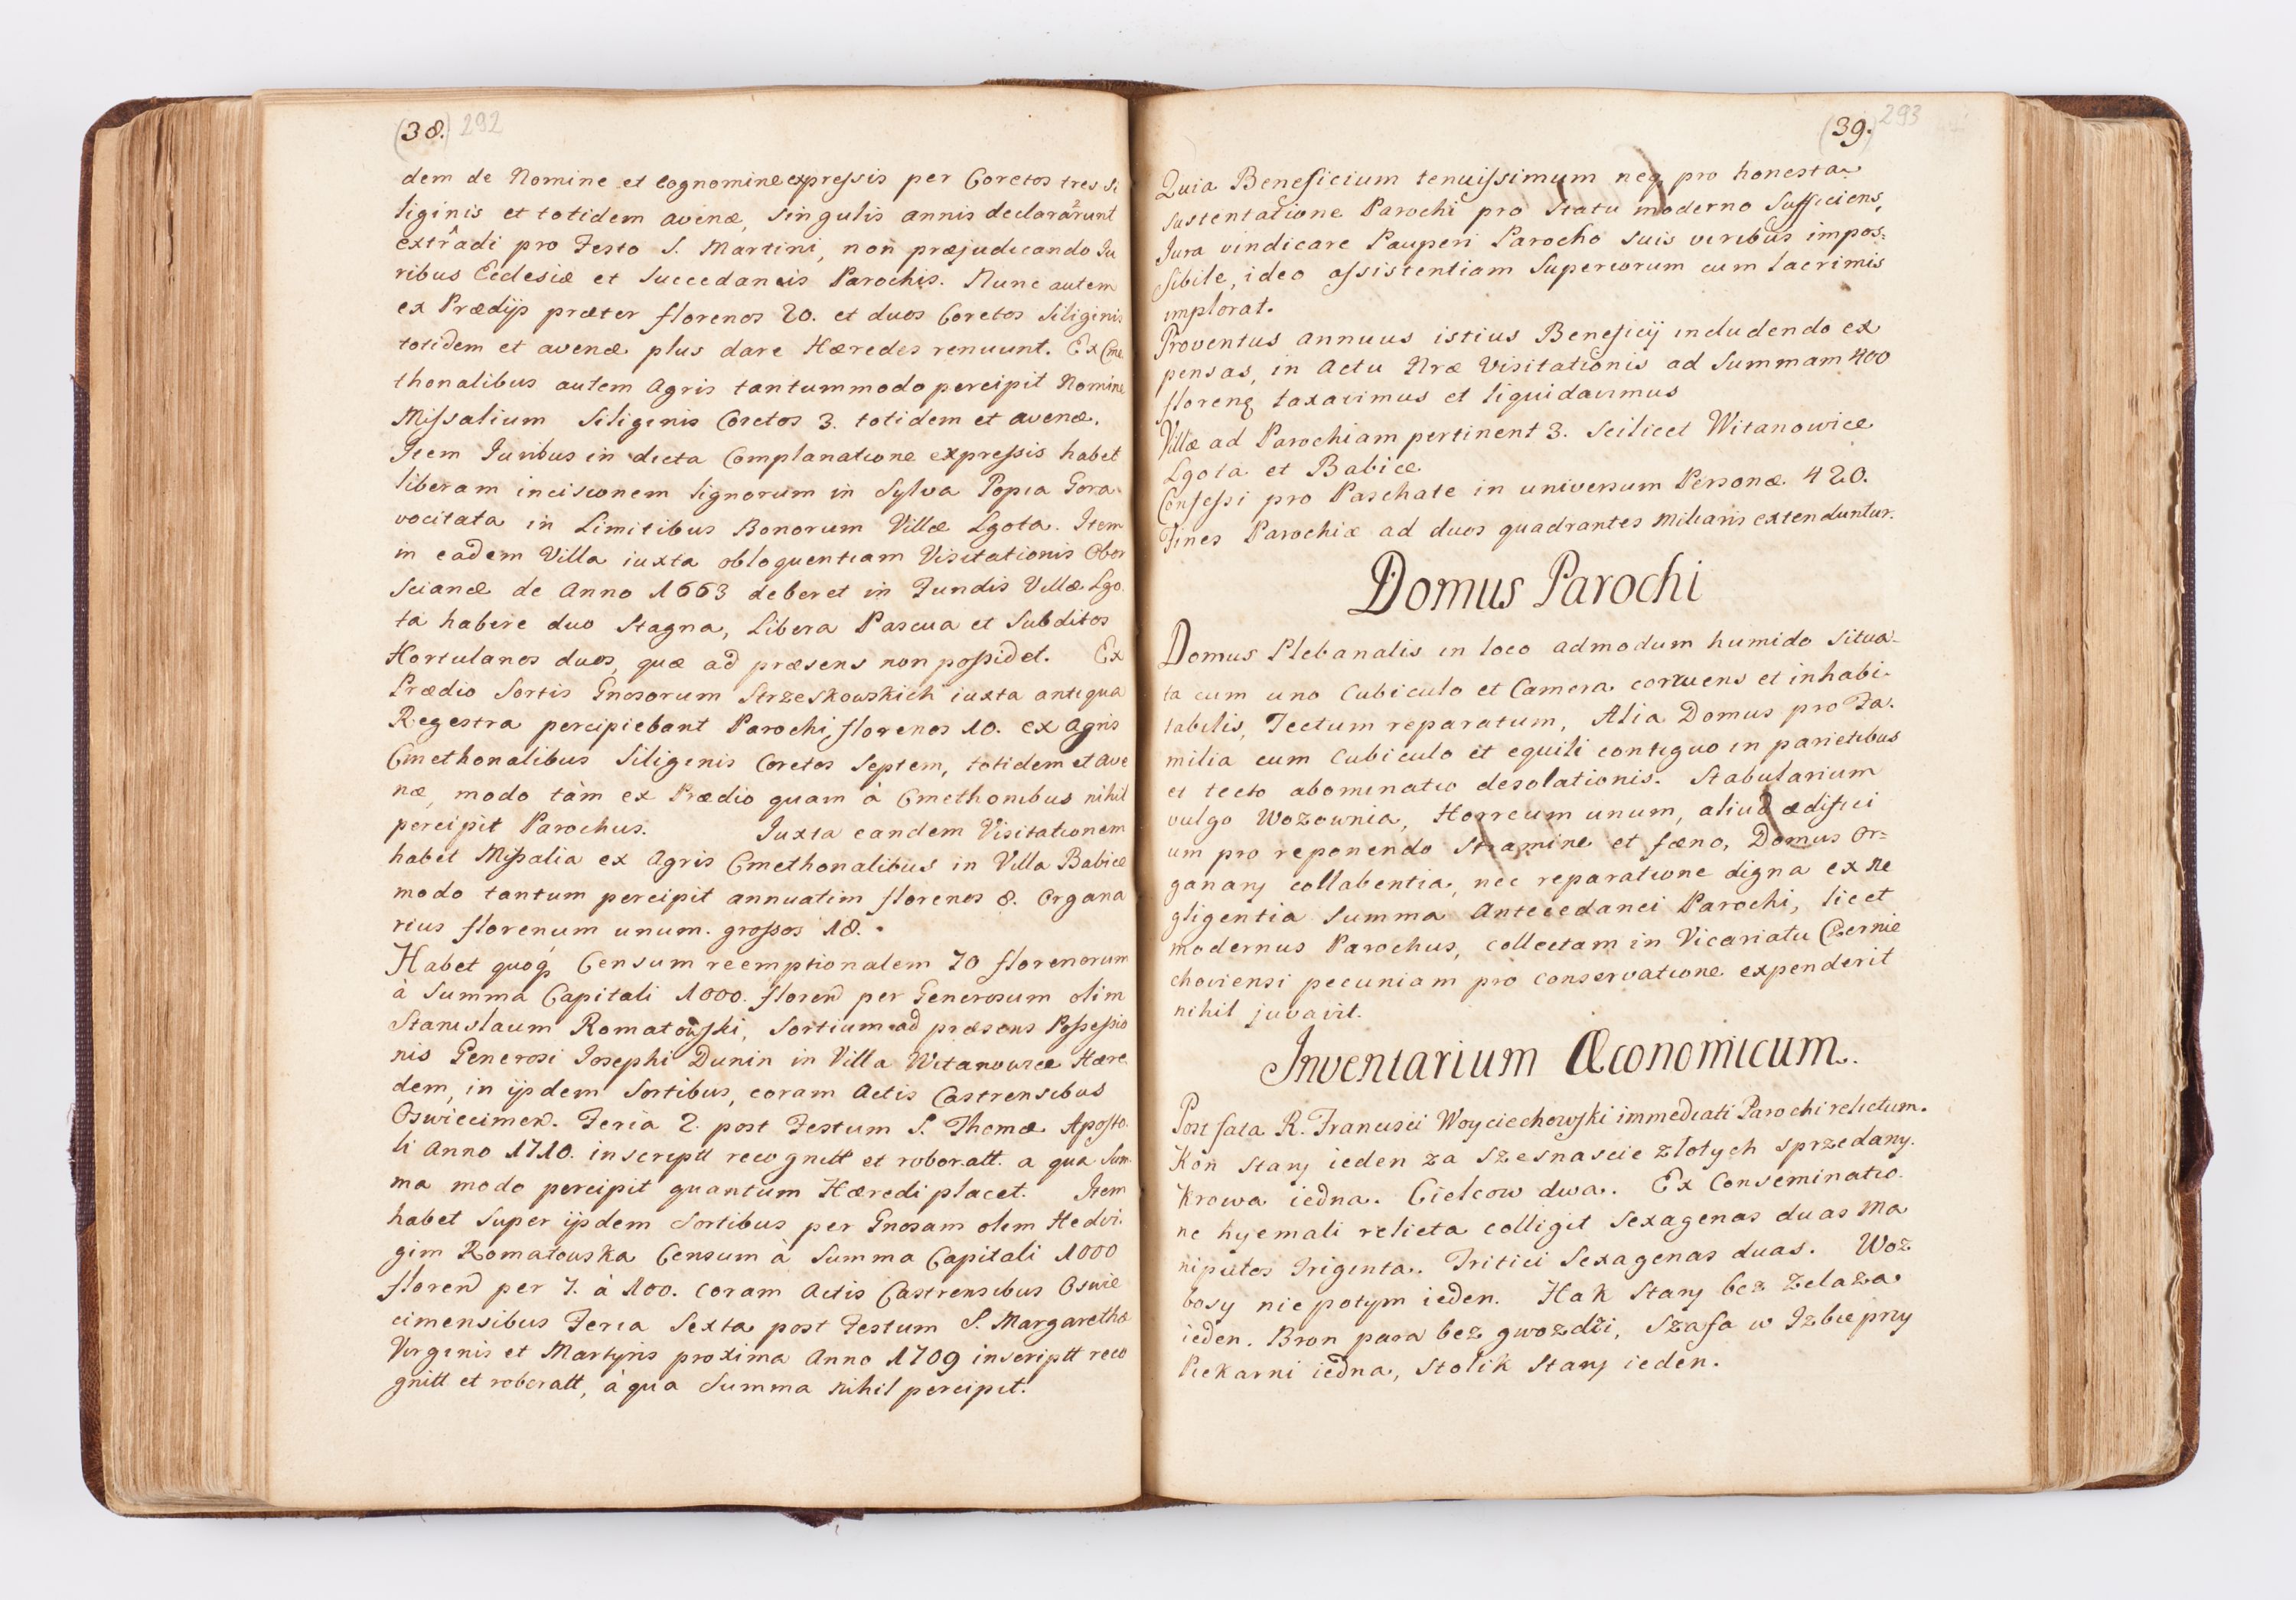 (38.) 292
dem de Nomine et cognomine expressis per Coretos tres si
liginis et totidem avenæ, singulis annis declararunt
extradi pro Festo S. Martini, non præjudicando Ju
ribus Ecclesiæ et succedaneis Parochis. Nunc autem
ex Prædijs præter florenos 20. et duos Coretos Siliginis
totidem et avenæ plus dare Hæredes renuunt. Ex Cme
thonalibus autem Agris tantummodo percipit Nomine
Missalium Siliginis Coretos 3. totidem et avenæ.
Item Juribus in dicta Complanatione expressis habet
liberam incisionem lignorum in Sylva Popia Gora
vocitata in Limitibus Bonorum Villæ Lgota. Item
in eadem Villa iuxta obloquentiam Visitationis Obor
scianæ de Anno 1663 deberet in Fundis Villæ Lgo
ta habere duo Stagna, Libera Pascua et Subditos
Hortulanos duos, quæ ad præsens non possidet. Ex
Prædio Sortis Gnosorum Strzeskowskich iuxta antiqua
Regestra percipiebant Parochi, florenos 10. ex Agris
Cmethonalibus Siliginis Coretos Septem, totidem et Ave
næ, modo tàm ex Prædio quam à Cmethonibus nihil
percipit Parochus. Iuxta eandem Visitationem
habet Missalia ex Agris Cmethonalibus in Villa Babice
modo tantum percipit annuatim florenos 8. Organa
rius florenum unum. grossos 18.
Habet quoq Censum reemptionalem 70 florenorum
à Summa Capitali 1000. floren per Generosum olim
Stanislaum Romatowski, Sortium ad præsens Possessio
nis Generosi Josephi Dunin in Villa Witanowice Hære
dem, in ijsdem Sortibus, coram Actis Castrensibus
Oswiecimen. Feria 2. post Festum S. Thomæ Aposto
li Anno 1710. inscriptt recognitt et roboratt. a qua Sum
ma modo percipit quantum Hæredi placet. Item
habet super ijsdem Sortibus per Gnosam olim Hedvi
gim Romatouska Censum à Summa Capitali 1000
floren per 7. à 100. coram Actis Castrensibus Oswie
cimensibus Feria Sexta post Festum S. Margarethæ
Virginis et Martyris proxima Anno 1709 inscriptt reco
gnitt et roboratt, à qua Summa nihil percipit.
(39.) 293
Quia Beneficium tenuissimum neq pro honesta
sustentatione Parochi pro Statu moderno Sufficiens,
Jura vindicare Pauperi Parocho suis viribus impos=
sibile, ideo assistentiam Superiorum cum lacrimis
implorat.
Proventus annuus istius Beneficij includendo ex
pensas, in Actu Nræ Visitationis ad Summam 400
florenq taxavimus et liquidavimus
Villæ ad Parochiam pertinent 3. scilicet Witanowice
Lgota et Babice
Confessi pro Paschate in universum Personæ 420.
Fines Parochiæ ad duos quadrantes Miliaris extenduntur.
Domus Parochi
Domus Plebanalis in loco admodum humido Situa-
ta cum uno Cubiculo et Camera corruens et inhabi-
tabilis, Tectum reparatum, Alia Domus pro Fa-
milia cum Cubiculo et equili contiguo in parietibus
et tecto abominatio desolationis. Stabularium
vulgo Wozownia, Horreum unum, aliud ædifici
um pro reponendo stramine et fæno, Domus Or=
ganarij collabentia, nec reparatione digna ex ne
gligentia Summa Antecedanei Parochi, licet
modernus Parochus, collectam in Vicariatu Czernie
choviensi pecuniam pro conservatione expenderit
nihil juvavit.
Inventarium Œconomicum.
Post fata R. Francisci Woyciechowski immediati Parochi relictum.
Kon stary ieden za szesnascie złotych sprzedany.
Krowa iedna. Cielcow dwa. Ex Conseminatio
ne hyemali relicta colligit Sexagenas duas Ma
nipulos Triginta. Tritici Sexagenas duas. Woz
bosy niepotym ieden. Hak stary bez zelaza
ieden. Bron para bez gwozdzi, Szafa w Izbie przy
Piekarni iedna, stolik stary ieden.